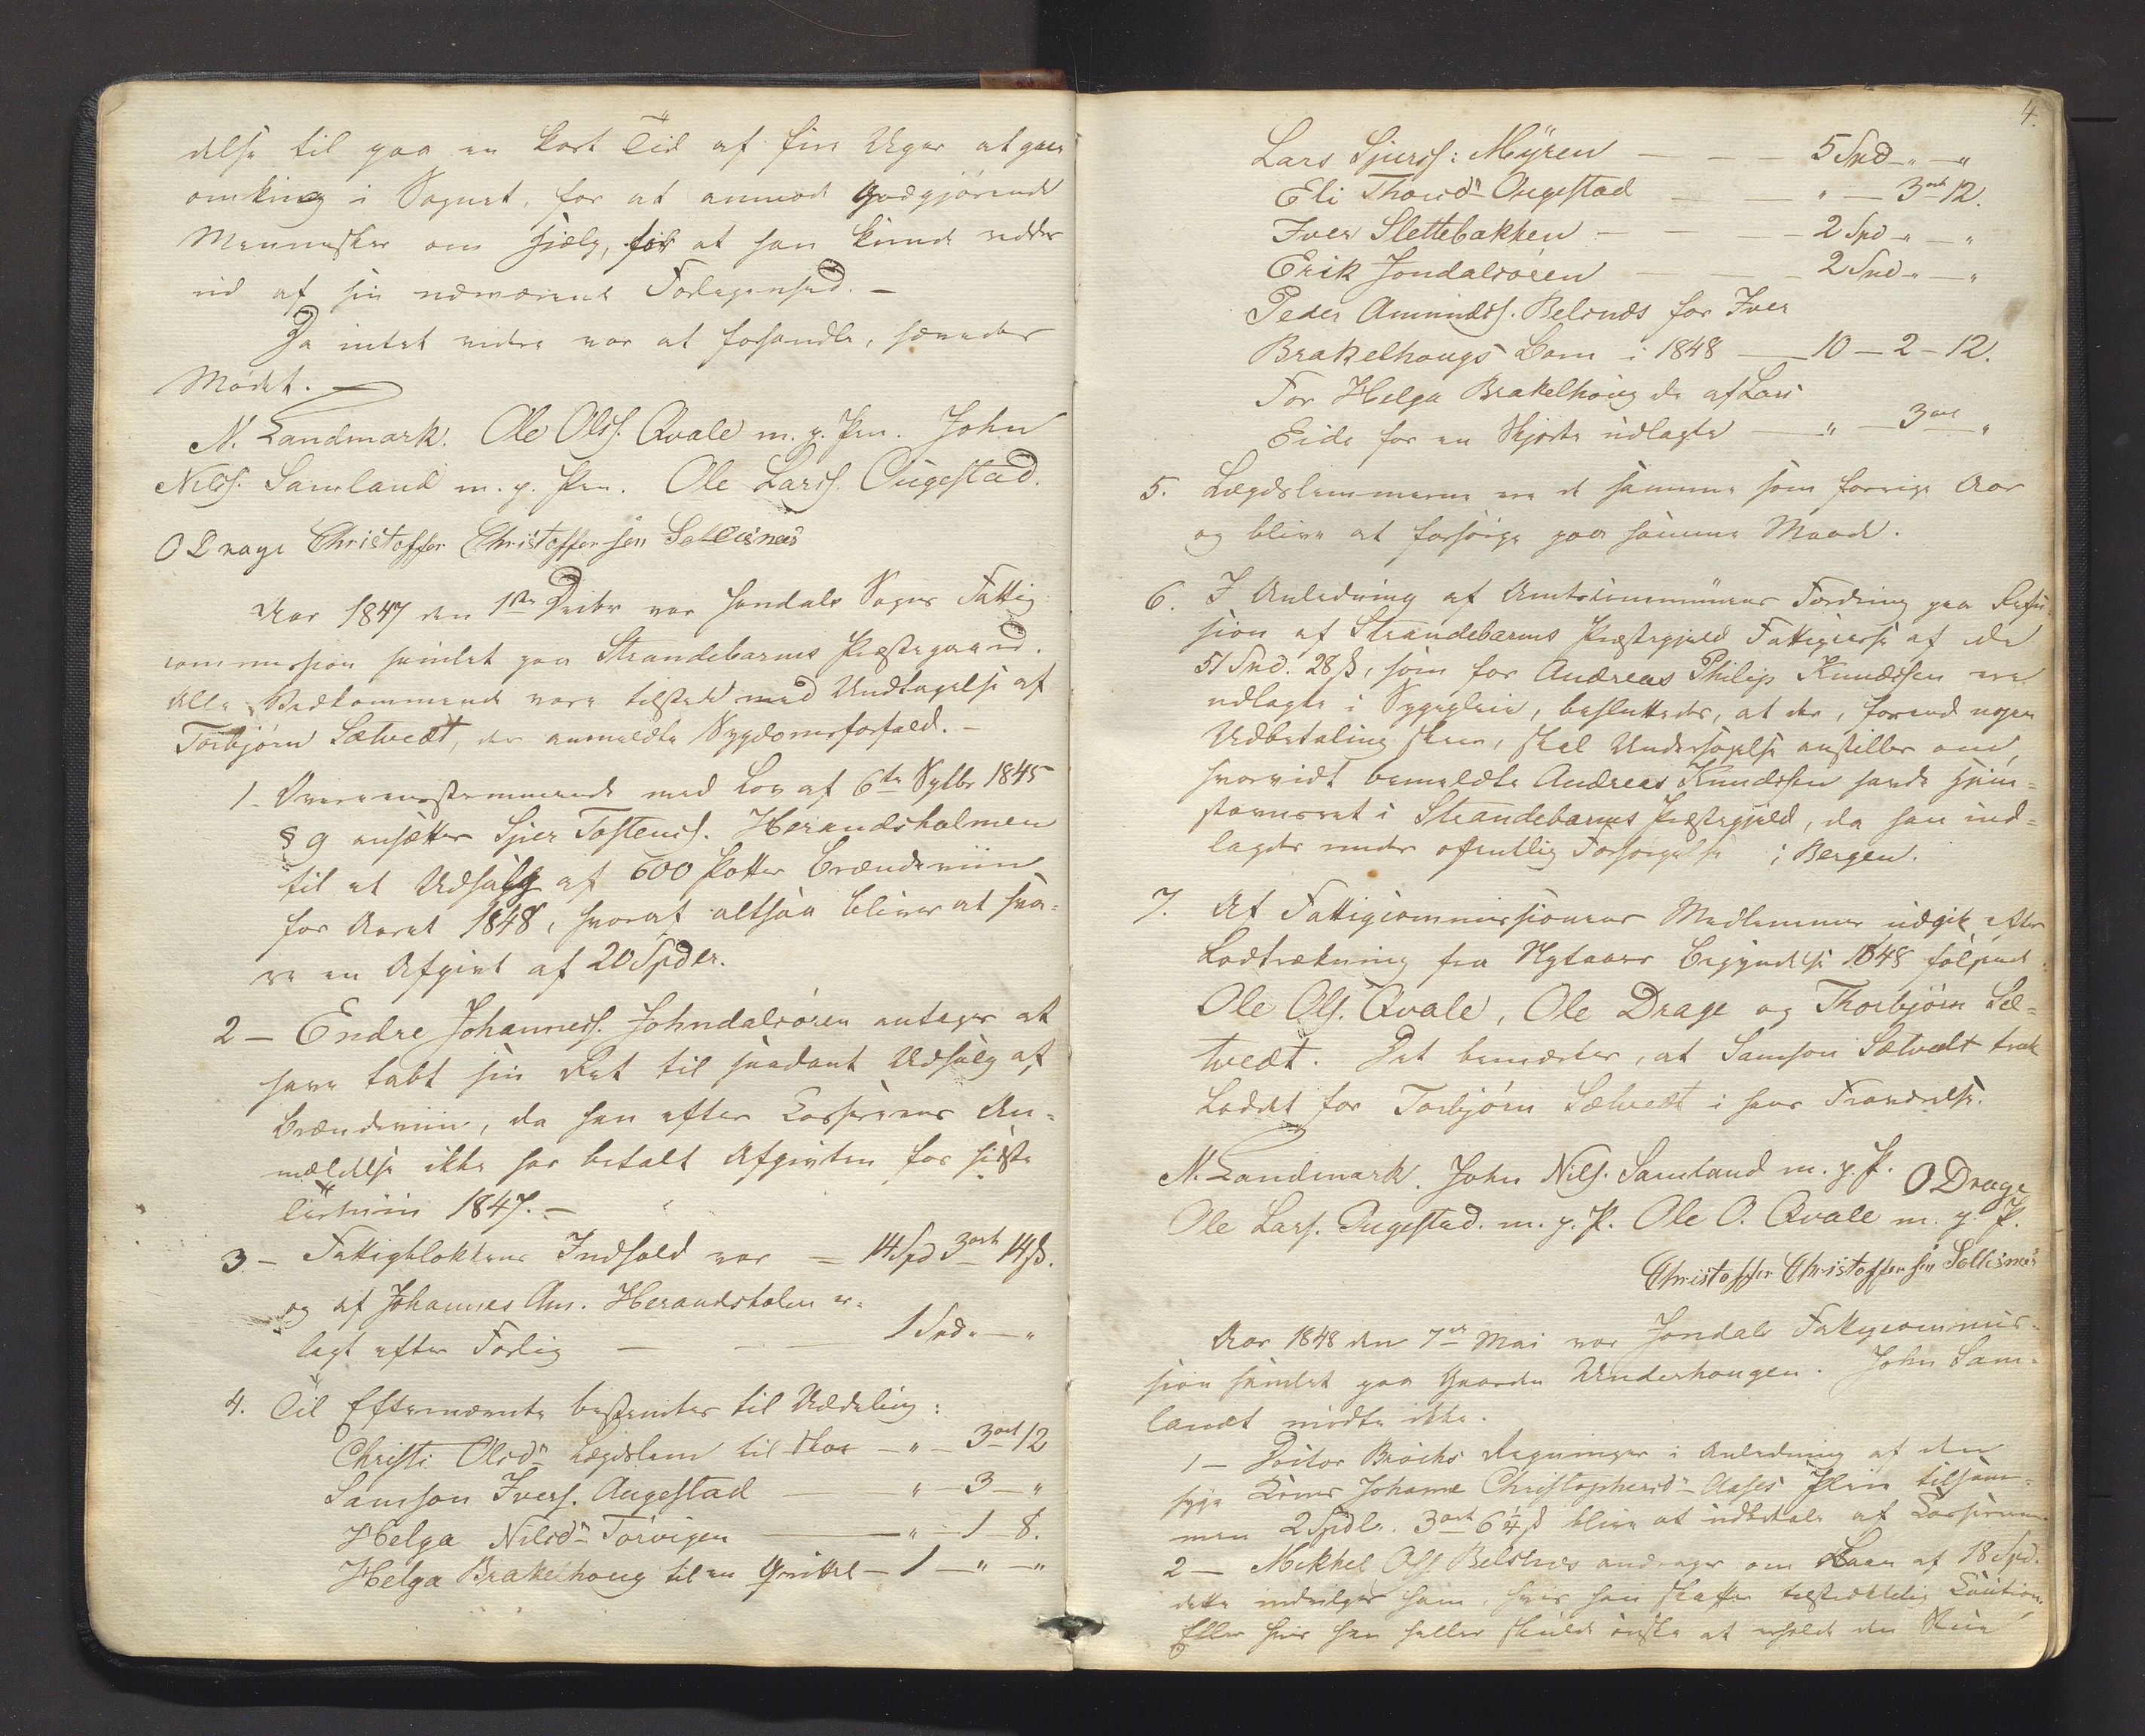 delse til paa en kort Tid af fire Uger at gaae
omkring i Sognet, for at anmode godgjørende
Mennesker om Hjælp, for at han kunde redde
ud af sin nærværende Forlegenhed. –
Da intet videre var at forhandle, hævedes
Mødet. –
N. Landmark. Ole Olss. Qvale m. p. Pen. John
Nilss. Samland m. p. Pen. Ole Larss. Ougestad.
O Drage Christoffer Christoffersen Sollesnæs
Aar 1847 den 1ste Decbr var Jondals Sogns Fattig
commission samlet paa Strandebarms Præstegaard.
Alle Vedkommende vare tilstede med Undtagelse af
Torbjørn Sætvedt, der anmeldte Sygdomsforfald. –
1 – Overeensstemmende med Lov af 6te Septbr 1845
§ 9 ansættes Sjur Tostens. Herandsholmen
til et Udsalg af 600 Potter Brændeviin
for Aaret 1848, hvoraf altsaa bliver at sva-
re en Afgivt af 20 Spdlr.
2 – Endre Johanness. Johndalsøren antages at
have tabt sin Ret til saadant Udsalg af
Brændeviin, da han efter Casserens An-
mældelse ikke har betalt Afgivten for sidste
Termin 1847. –
3 – Fattigblokkens Indhold var – 14 Spd 3 ort 14 ß.
og af Johannes Am. Herandsholm er-
lagt efter Forlig – – – 1 Spd. " – "
4. Til Efternævnte bestemtes til Uddeling:
Christi Olsdr Lægdslem til Skoe – " – 3 ort 12
Samson Ivers. Augestad – " – 3 – "
Helga Nilsdr Torvigen – " – 1 – 8.
Helga Brakelhoug til en Grittel – 1 – " – "
4.
Lars Sjurss: Myren – – – 5 Spd – " – "
Eli Thordr Ougestad – – " – 3 ort 12.
Iver Slettebakken – – – 2 Spd – " – "
Erik Jondalsøren – – – 2 Spd – " – "
Peder Amundss. Belsnæs for Iver
Brakelhougs Barn i 1848 – 10 – 2 – 12.
For Helga Brakelhoug de af Lars
Eide for en Skjorte udlagte – " – 3 ort "
5. Lægdslemmerne ere de samme som forrige Aar
og blive at forsørge paa samme Maade.
6. I Anledning af Amtscommunens Fordring paa Refu-
sion af Strandebarms Præstegjeld Fattigcasse af de
51 Spd. 28 ß, som for Andreas Philip Knudssen ere
udlagte i Sygepleie, besluttedes, at der, forend nogen
Udbetaling skeer, skal Undersøgelse anstilles om,
hvorvidt bemeldte Andreas Knudssen havde Hjem-
stavnsret i Strandebarms Præstegjeld, da han ind-
lagdes under offentlig Forsørgelse i Bergen.
7. Af Fattigcommissionens Medlemmer udgik efter
Lodtrækning fra Nytaars Begyndelse 1848 følgende:
Ole Ols. Qvale, Ole Drage og Thorbjørn Sæ-
tvedt. Det bemærkes, at Samson Sætvedt trak
Loddet for Torbjørn Sætvedt i hans Fraværelse.
N. Landmark. John Nils. Samland m. p. P. O Drage
Ole Lars. Ougestad. m. p. P. Ole O. Qvale m. p. P.
Christoffer Christoffersen Sollesnæs
Aar 1848 den 7de Mai var Jondals Fattigcommis-
sion samlet paa Gaarden Underhougen. John Sam-
landt mødte ikke.
1 – Doctor Brochs Regninger i Anledning af den
syge Kone Johanne Christophersdr Aases Pleie tilsam-
men 2 Spdlr. 3 ort 6 1/4 ß blive at udbetale af Casseren.
2 – Mikkel Ols. Belsnæs andrager om Laan af 18 Spd.
dette indvilges ham, hvis han skaffer tilstrækkelig Caution.
Eller hvis han heller skulde ønske at erholde den